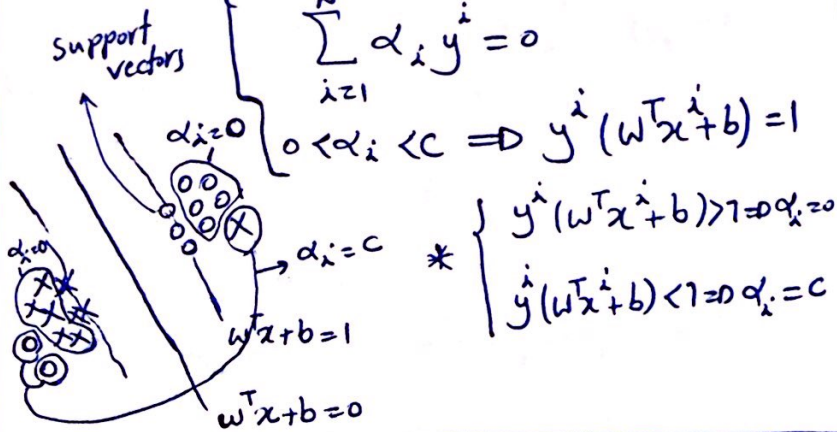 support
vectors
∑ αᵢ yⁱ = 0
i=1
αᵢ=0
0 < αᵢ < C ⇒ yⁱ (wᵀxⁱ+b) = 1
αᵢ=0
yⁱ(wᵀxⁱ+b)>1⇒αᵢ=0
→ αᵢ = C
*
yⁱ(wᵀxⁱ+b)<1⇒αᵢ=C
wᵀx+b=1
wᵀx+b=0